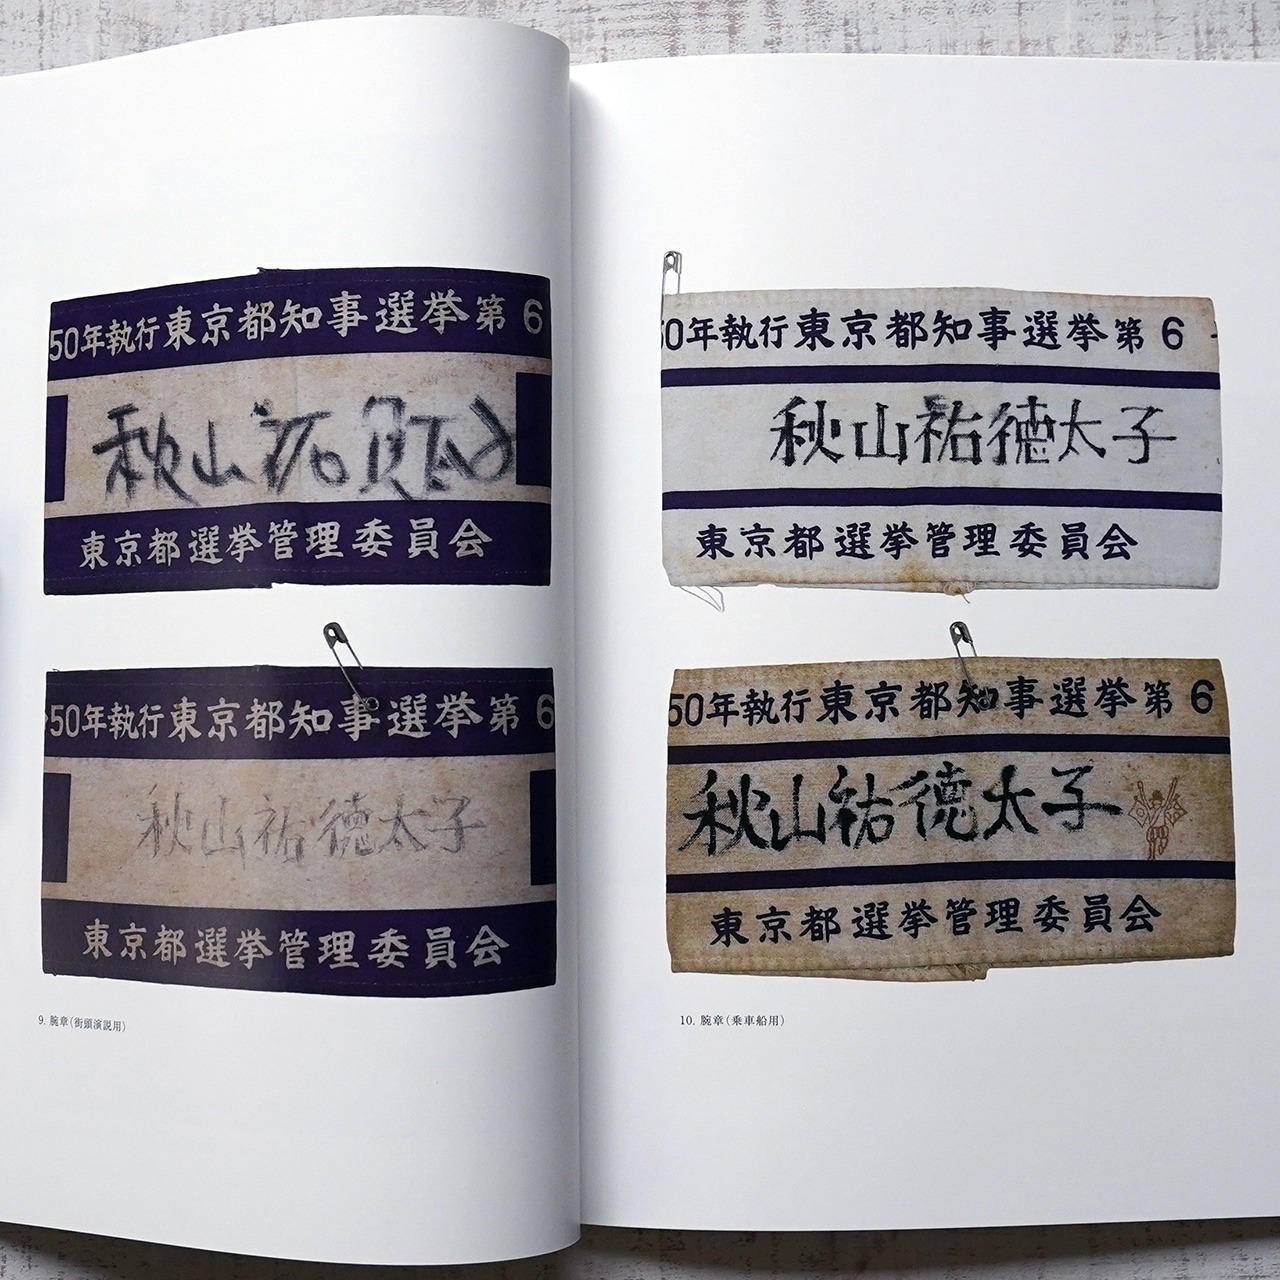 50年執行東京都知事選挙第6
秋山祐徳太子
東京都選挙管理委員会
50年執行東京都知事選挙第6
秋山祐徳太子
東京都選挙管理委員会
9. 腕章（街頭演説用）
50年執行東京都知事選挙第6
秋山祐徳太子
東京都選挙管理委員会
50年執行東京都知事選挙第6
秋山祐徳太子
東京都選挙管理委員会
10. 腕章（乗車船用）